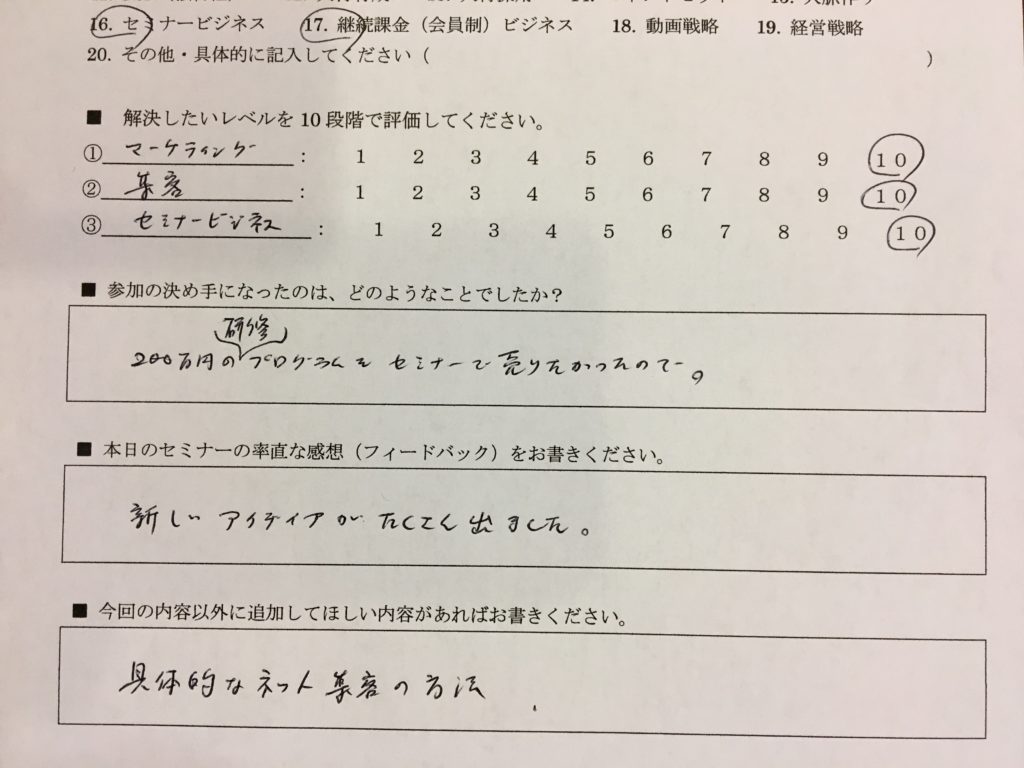 16. セミナービジネス 17. 継続課金（会員制）ビジネス 18. 動画戦略 19. 経営戦略
20. その他・具体的に記入してください（ ）
■ 解決したいレベルを10段階で評価してください。
① マーケティング : 1 2 3 4 5 6 7 8 9 10
② 集客 : 1 2 3 4 5 6 7 8 9 10
③ セミナービジネス : 1 2 3 4 5 6 7 8 9 10
■ 参加の決め手になったのは、どのようなことでしたか？
研修
200万円のプログラムをセミナーで売りたかったので。
■ 本日のセミナーの率直な感想（フィードバック）をお書きください。
新しいアイディアがたくさん出ました。
■ 今回の内容以外に追加してほしい内容があればお書きください。
具体的なネット集客の方法